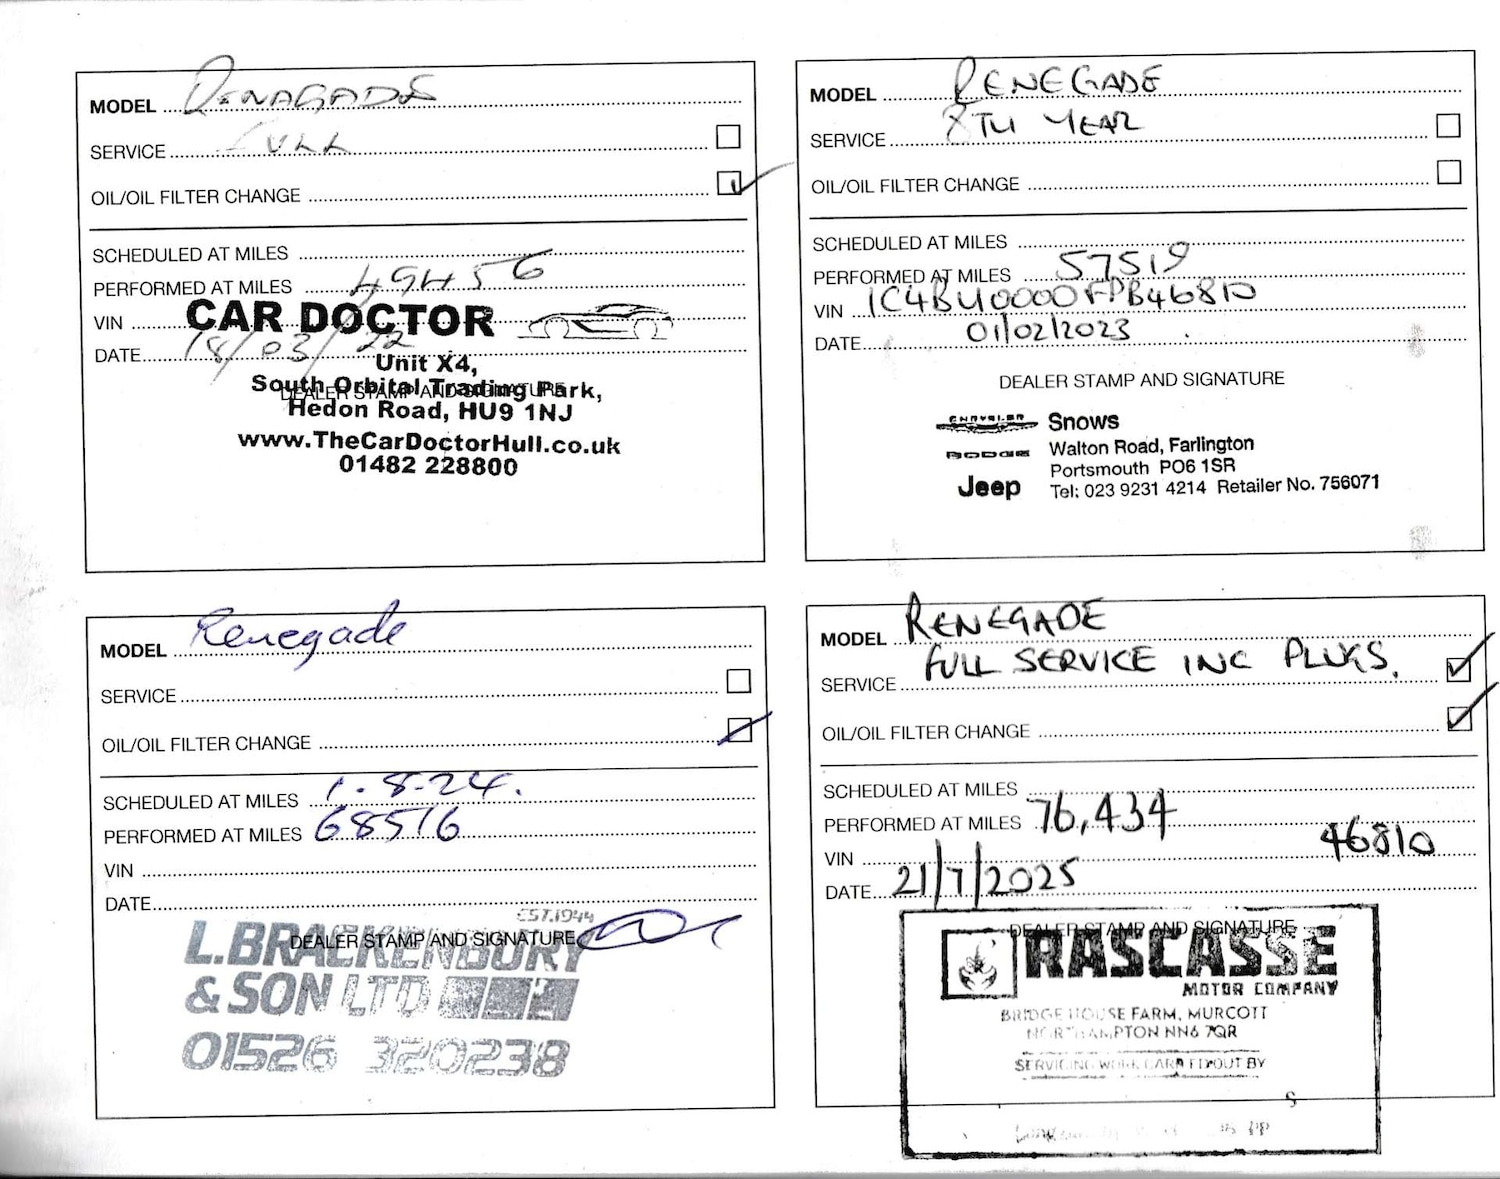 MODEL RENAGADE
SERVICE FULL
OIL/OIL FILTER CHANGE
SCHEDULED AT MILES
PERFORMED AT MILES 49456
VIN
CAR DOCTOR
DATE 18/03/22
Unit X4,
South Orbital Trading Park,
DEALER STAMP AND SIGNATURE
Hedon Road, HU9 1NJ
www.TheCarDoctorHull.co.uk
01482 228800
MODEL RENEGADE
SERVICE 8TH YEAR
OIL/OIL FILTER CHANGE
SCHEDULED AT MILES
PERFORMED AT MILES 57519
VIN 1C4BU0000FPB46810
DATE 01/02/2023
DEALER STAMP AND SIGNATURE
CHRYSLER
DODGE
Jeep
Snows
Walton Road, Farlington
Portsmouth PO6 1SR
Tel: 023 9231 4214 Retailer No. 756071
MODEL Renegade
SERVICE
OIL/OIL FILTER CHANGE
SCHEDULED AT MILES 1.8.24.
PERFORMED AT MILES 68516
VIN
DATE
EST.1944
DEALER STAMP AND SIGNATURE
L.BRACKENBURY
& SON LTD
01526 320238
MODEL RENEGADE
SERVICE FULL SERVICE INC PLUGS.
OIL/OIL FILTER CHANGE
SCHEDULED AT MILES
PERFORMED AT MILES 76,434
VIN 46810
DATE 21/7/2025
DEALER STAMP AND SIGNATURE
RASCASSE
MOTOR COMPANY
BRIDGE HOUSE FARM, MURCOTT
NORTHAMPTON NN6 7QR
SERVICING WORK CARRIED OUT BY